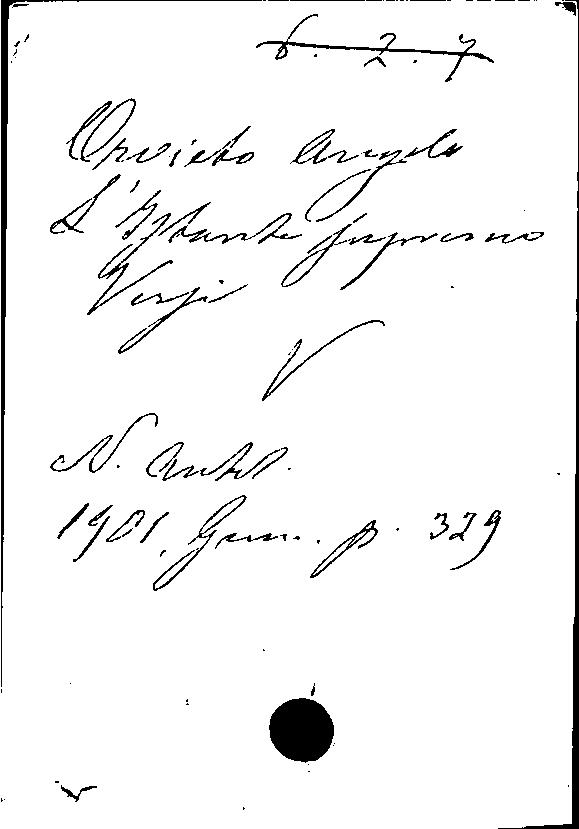 6. 2. 7
Orvieto Angelo
L'Istante supremo
Versi
V
N. Antol.
1901, Genn. p. 329